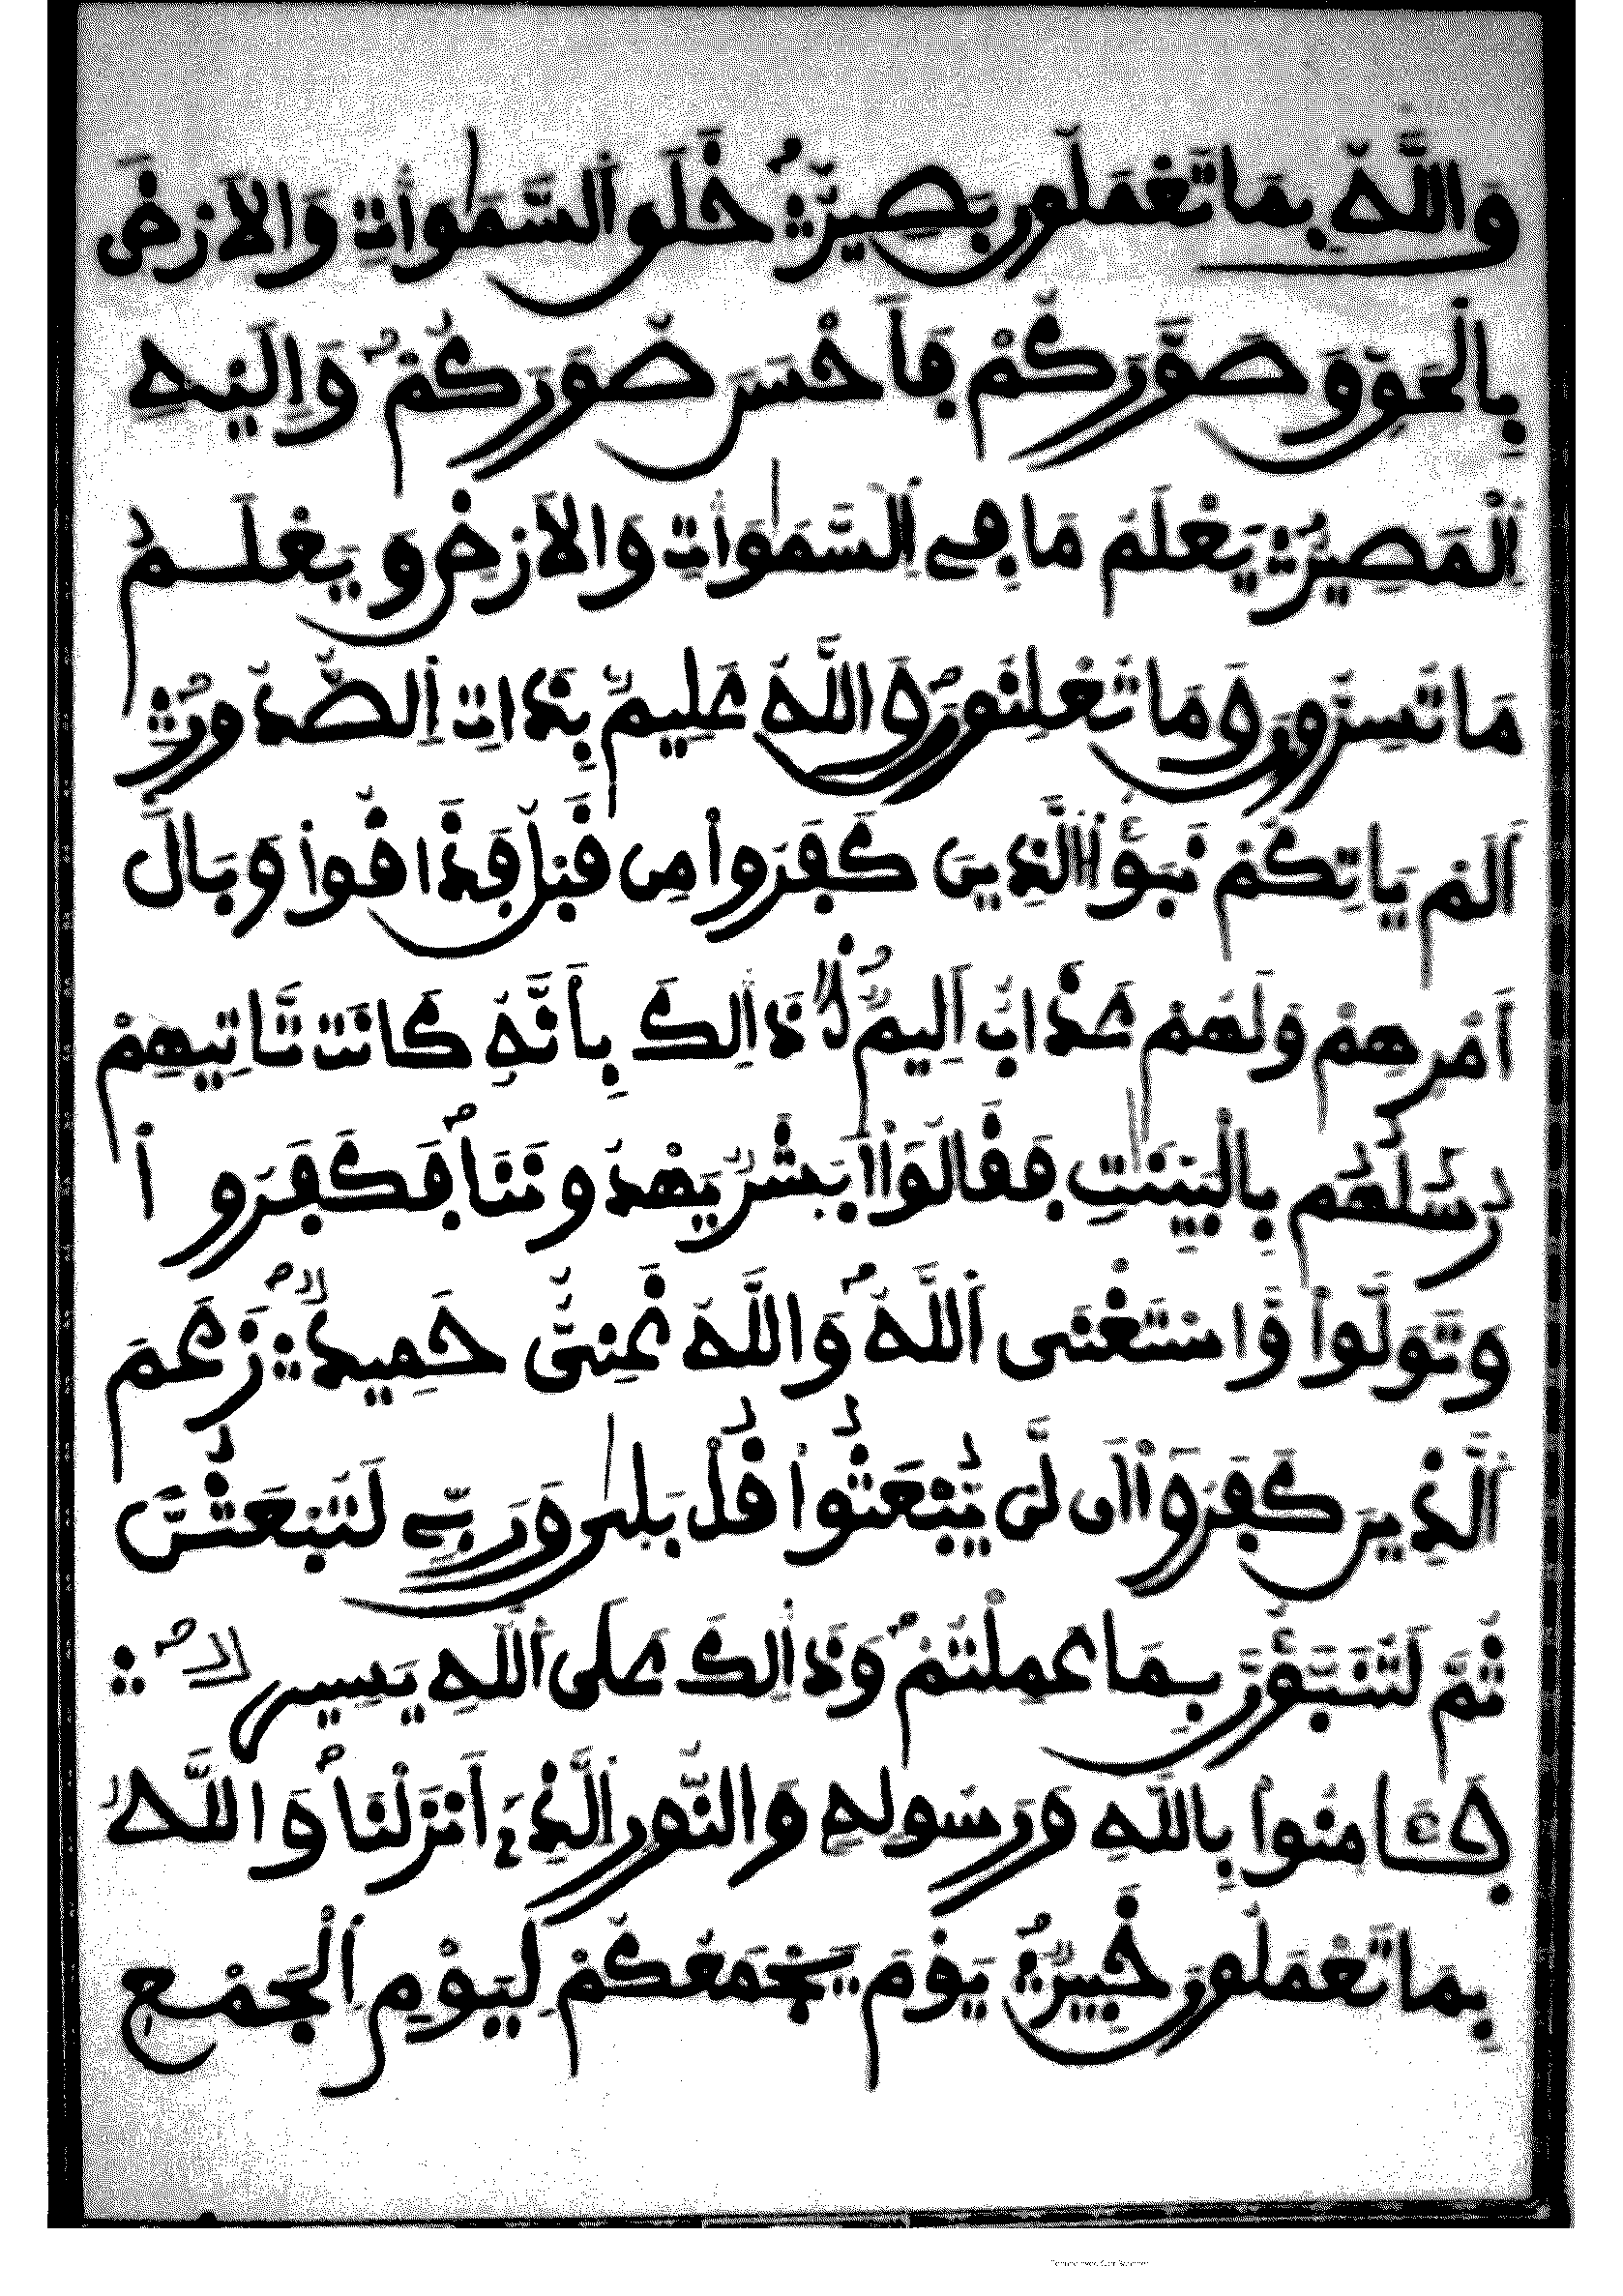 وَاللَّهُ بِمَا تَعْمَلُونَ بَصِيرٌ خَلَقَ السَّمَٰوَاتِ وَالَارْضَ
بِالْحَقِّ وَصَوَّرَكُمْ فَأَحْسَنَ صُوَرَكُمْ وَإِلَيْهِ
اِلْمَصِيرُ يَعْلَمُ مَا فِي اِلسَّمَٰوَاتِ وَالَارْضِ وَيَعْلَمُ
مَا تُسِرُّونَ وَمَا تُعْلِنُونَ وَاللَّهُ عَلِيمٌ بِذَاتِ اِلصُّدُورِ
أَلَمْ يَاتِكُمْ نَبَؤُاْ الَّذِينَ كَفَرُواْ مِن قَبْلُ فَذَاقُواْ وَبَالَ
أَمْرِهِمْ وَلَهُمْ عَذَابٌ اَلِيمٌ ذَالِكَ بِأَنَّهُ كَانَت تَّاتِيهِمْ
رُسُلُهُم بِالْبَيِّنَٰتِ فَقَالُواْ أَبَشَرٌ يَهْدُونَنَا فَكَفَرُواْ
وَتَوَلَّواْ وَّاسْتَغْنَى اَللَّهُ وَاللَّهُ غَنِىٌّ حَمِيدٌ زَعَمَ
اَلَّذِينَ كَفَرُواْ أَن لَّنْ يُّبْعَثُواْ قُلْ بَلَىٰ وَرَبِّي لَتُبْعَثُنَّ
ثُمَّ لَتُنَبَّؤُنَّ بِمَا عَمِلْتُمْ وَذَالِكَ عَلَى اَللَّهِ يَسِيرٌ
فَـَٔامِنُواْ بِاللَّهِ وَرَسُولِهِ وَالنُّورِ اِلَّذِي أَنزَلْنَا وَاللَّهُ
بِمَا تَعْمَلُونَ خَبِيرٌ يَوْمَ يَجْمَعُكُمْ لِيَوْمِ اِلْجَمْعِ